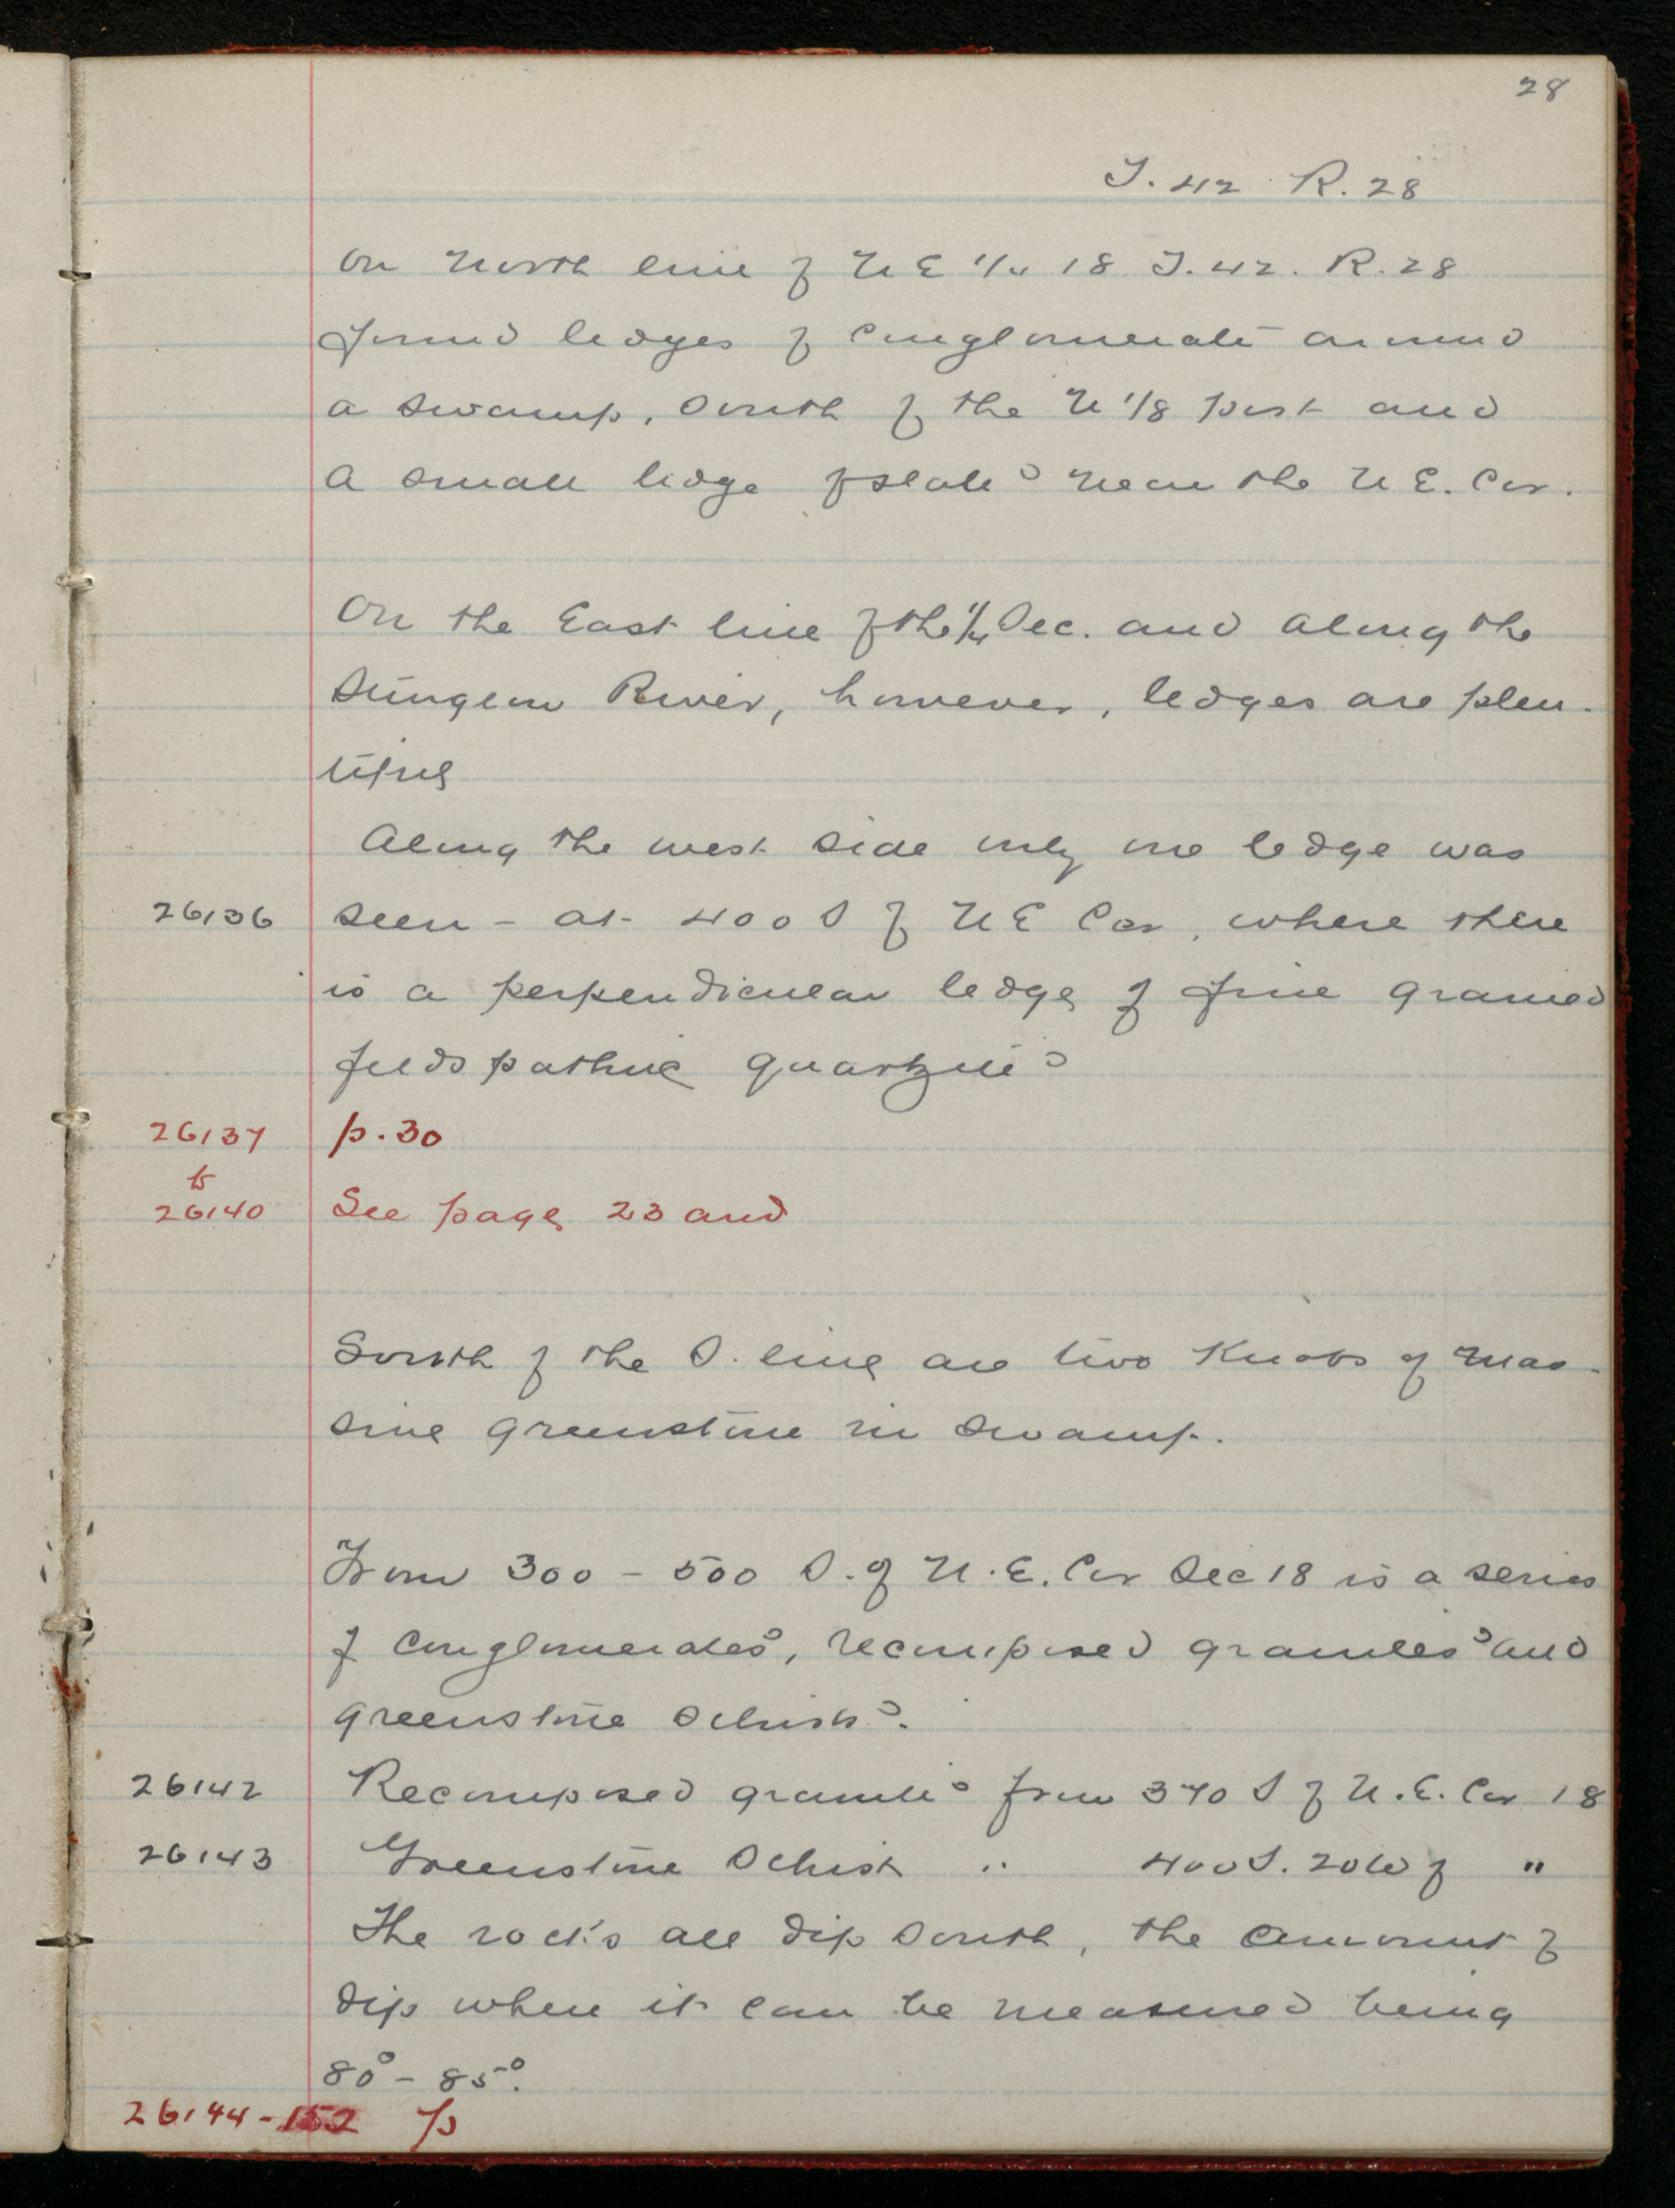 28
T. 42 R. 28
On north line of NE 1/4 18 T. 42. R. 28
found ledges of conglomerate around
a swamp, south of the N 1/8 post and
a small ledge of slate near the N E. Cor.
On the East line of the 1/4 Sec. and along the
Sturgeon River, however, ledges are plen-
tiful
Along the west side only one ledge was
26136 seen - at 400 S of NE Cor, where there
is a perpendicular ledge of fine grained
feldspathic quartzite
26137 p. 30
to
26140 See page 23 and
South of the S. line are two knobs of mas-
sive greenstone in swamp.
From 300 - 500 S. of N. E. Cor Sec 18 is a series
of conglomerates, recomposed granites and
greenstone schists.
26142 Recomposed granite from 370 S of N. E. Cor 18
26143 Greenstone Schist " 400 S. 20 W of "
The rocks all dip south, the amount of
dip where it can be measured being
80° - 85°.
26144-152 p